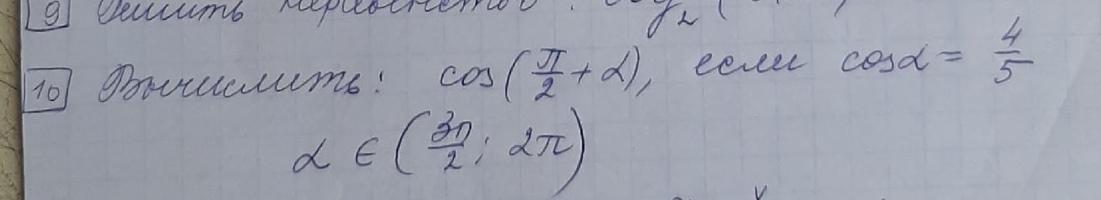 9 Решить неравенство: log₂(
10 Вычислить: cos(π/2 + α), если cosα = 4/5
α ∈ (3π/2; 2π)